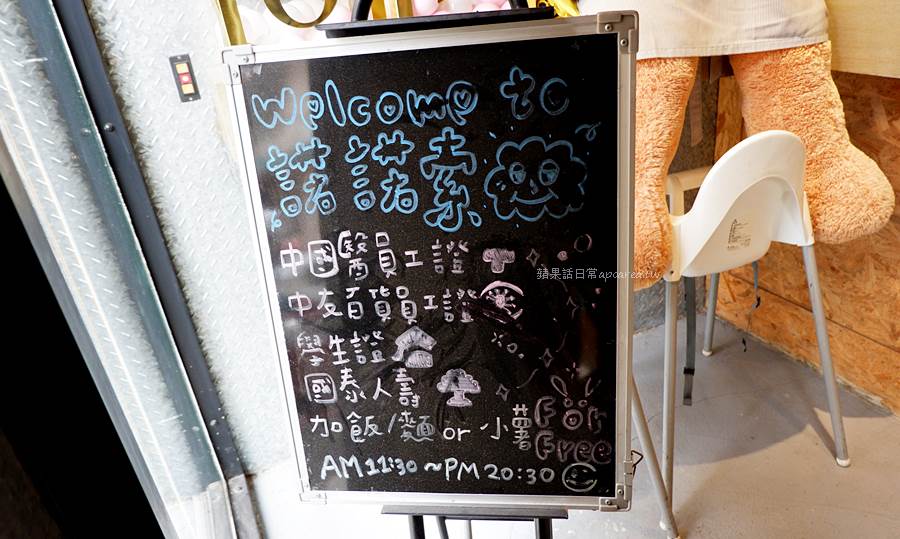 Welcome to
諸諸素
中國醫員工證
蘋果話日常apoarea.tw
中友百貨員工證
學生證
國泰人壽
加飯/麵 or 小薯 For Free
AM 11:30 ~ PM 20:30